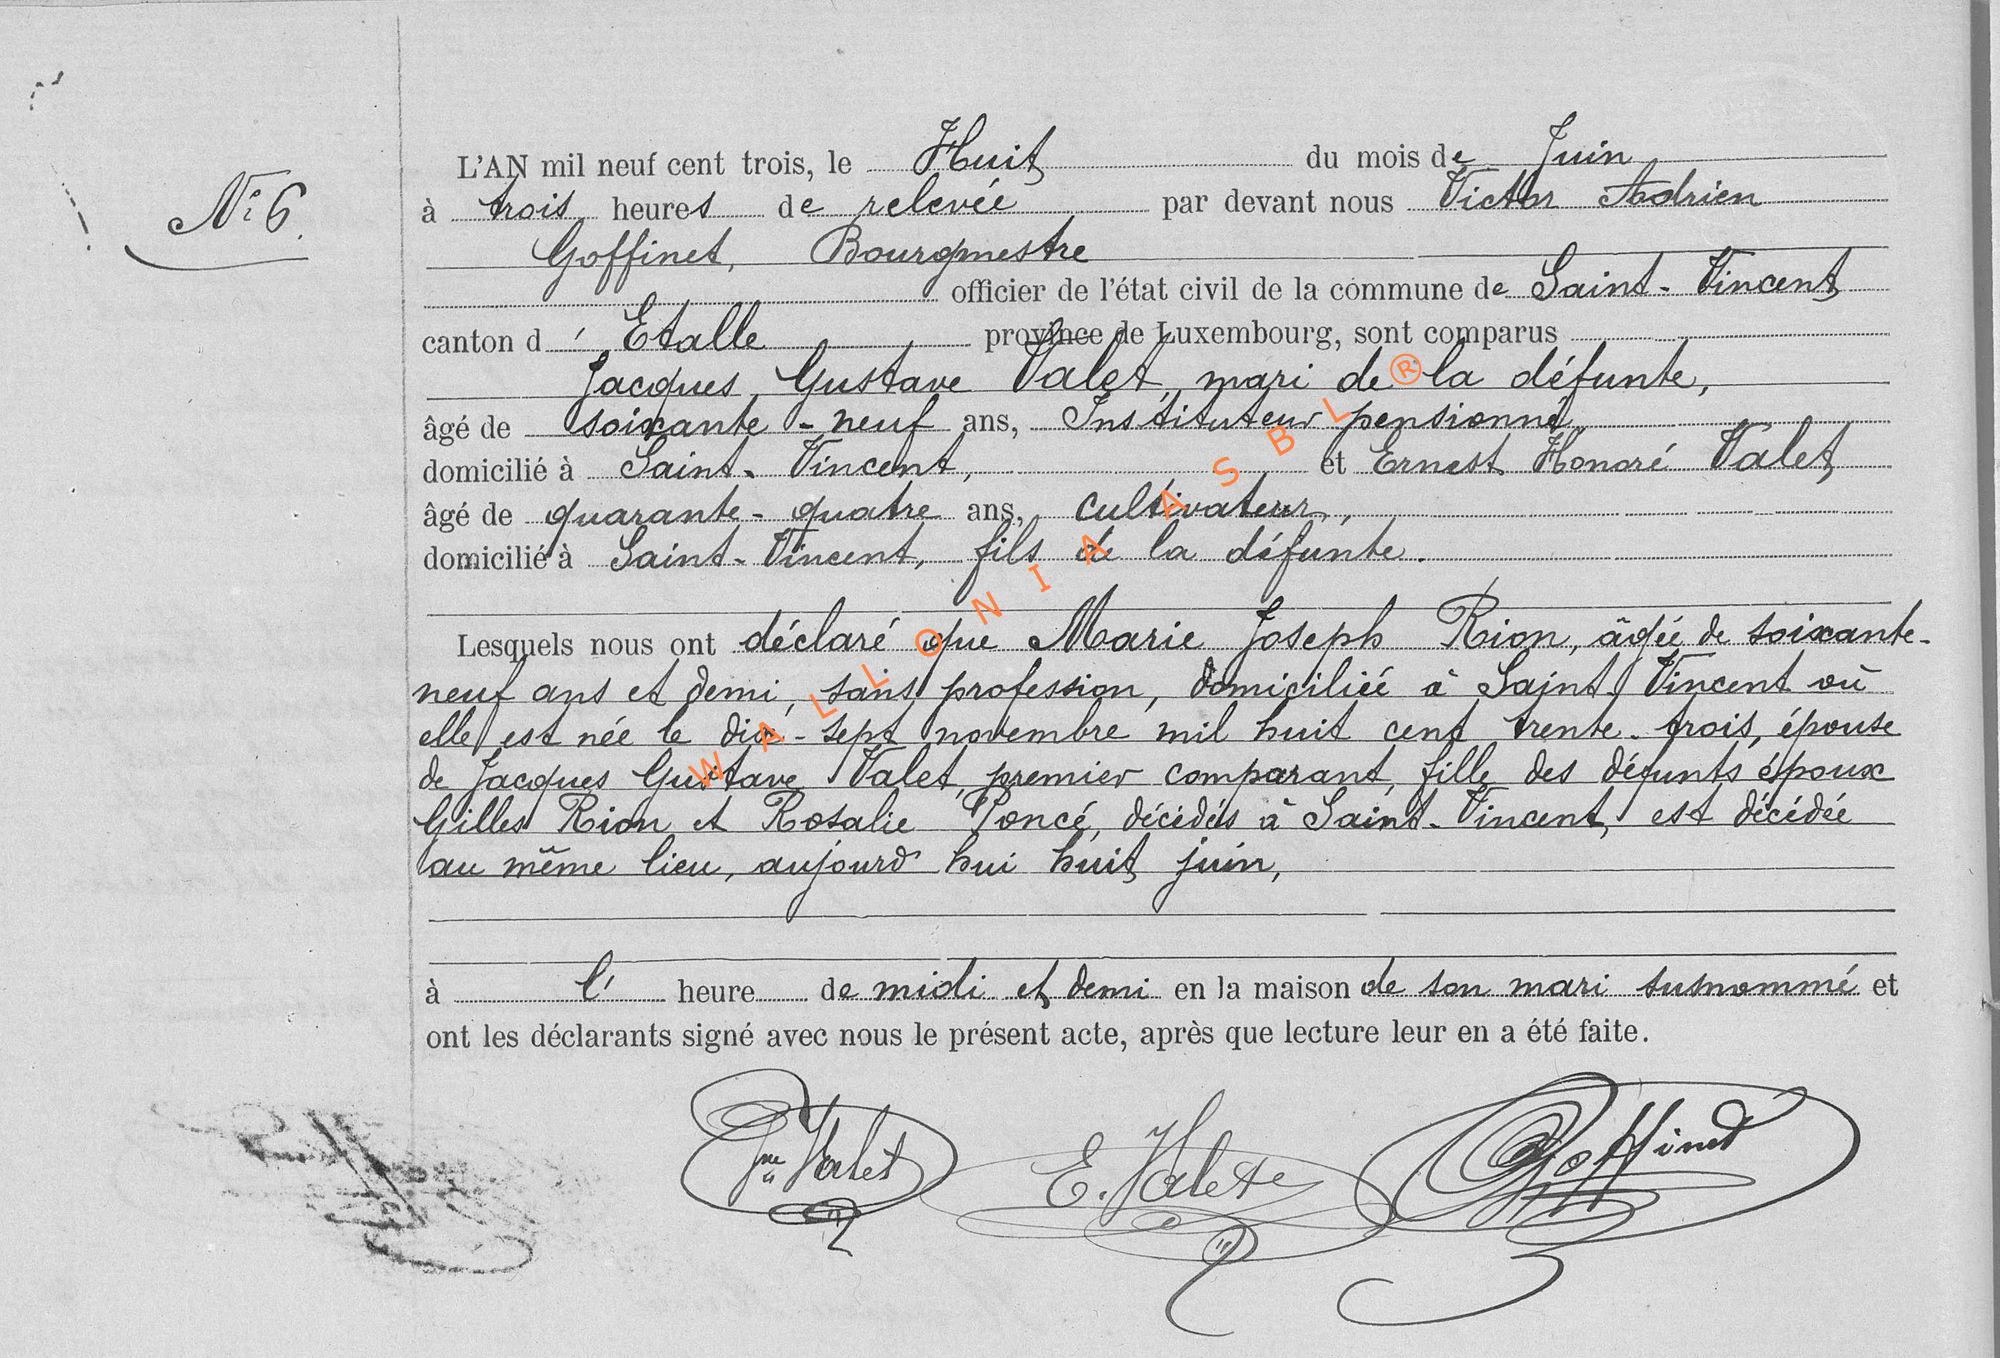 N° 6.
L'AN mil neuf cent trois, le Huit du mois de Juin
à trois heures de relevée par devant nous Victor Adrien
Goffinet, Bourgmestre
officier de l'état civil de la commune de Saint-Vincent
canton d'Etalle province de Luxembourg, sont comparus
Jacques Gustave Valet, mari de la défunte,
âgé de soixante-neuf ans, Instituteur pensionné,
domicilié à Saint-Vincent, et Ernest Honoré Valet,
âgé de quarante-quatre ans, cultivateur,
domicilié à Saint-Vincent, fils de la défunte.
Lesquels nous ont déclaré que Marie Joseph Rion, âgée de soixante-
neuf ans et demi, sans profession, domiciliée à Saint-Vincent où
elle est née le dix-sept novembre mil huit cent trente-trois, épouse
de Jacques Gustave Valet, premier comparant, fille des défunts époux
Gilles Rion et Rosalie Poncé, décédés à Saint-Vincent, est décédée
au même lieu, aujourd'hui huit juin,
à l'heure de midi et demi en la maison de son mari susnommé et
ont les déclarants signé avec nous le présent acte, après que lecture leur en a été faite.
Valet E. Valet Goffinet
WALLONIA ASBL ®